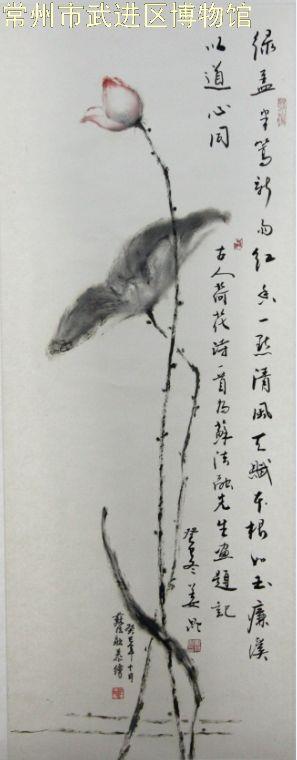 常州市武进区博物馆
绿盖半篙新雨红香一点清风天赋本根如玉濂溪
以道心同
古人荷花诗一首为苏法融先生画题记
癸巳冬姜
癸巳年十月
苏法融恭绘